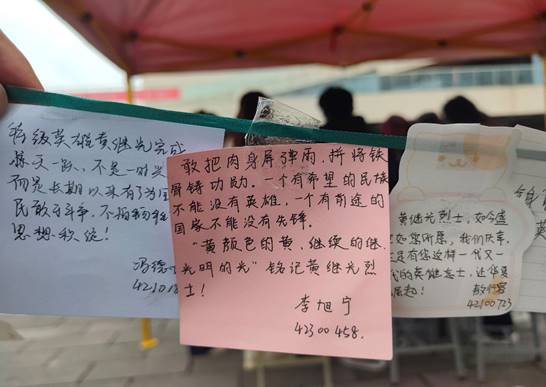 特级英雄黄继光完成
惊天一跃，不是一时兴
而是长期以来有为国
民敢于斗争，不怕牺牲
思想积
冯
42101
敢把肉身屏弹雨，拼将铁
骨铸功勋。一个有希望的民族
不能没有英雄，一个有前途的
国家不能没有先锋。
“黄颜色的黄，继续的继，
光明的光”铭记黄继光烈
士！
李旭宁
42300458.
黄继光烈士，如今盛
如您所愿，我们庆幸，
是有您这样一代又一
代的英雄志士，让华夏
起！
42100723